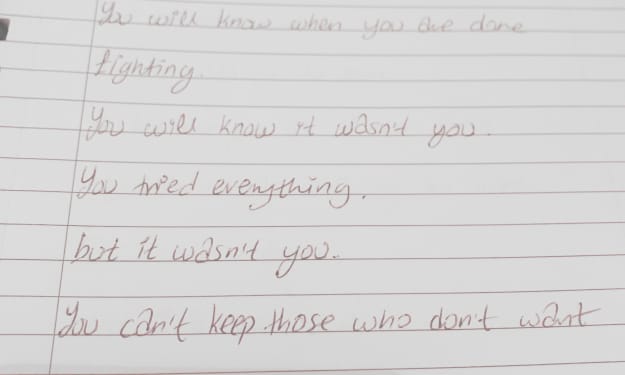 You will know when you are done
fighting.
You will know it wasn't you.
You tried everything.
but it wasn't you.
You can't keep those who don't want